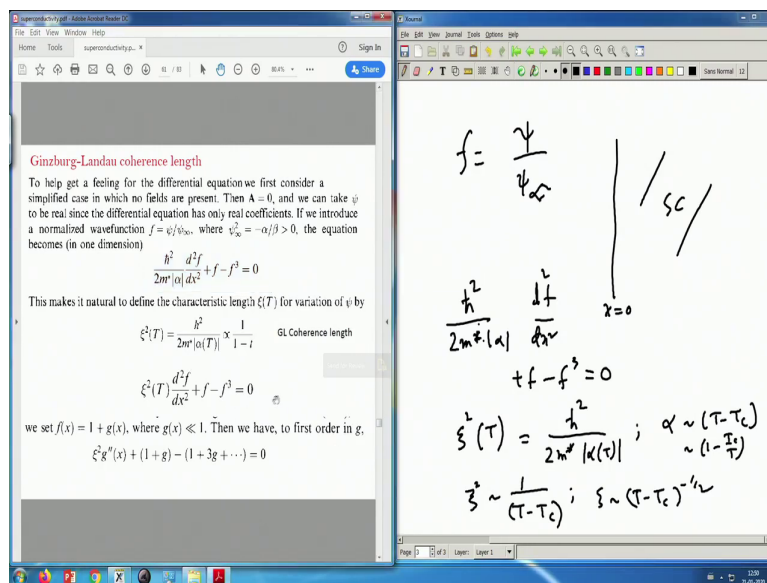 superconductivity.pdf - Adobe Acrobat Reader DC
File Edit View Window Help
Home Tools superconductivity.p... × ? Sign In
61 / 83 80.4% Share
Ginzburg-Landau coherence length
To help get a feeling for the differential equation we first consider a
simplified case in which no fields are present. Then A = 0, and we can take ψ
to be real since the differential equation has only real coefficients. If we introduce
a normalized wavefunction f = ψ/ψ∞, where ψ²∞ = −α/β > 0, the equation
becomes (in one dimension)
ħ²/2m*|α| d²f/dx² + f − f³ = 0
This makes it natural to define the characteristic length ξ(T) for variation of ψ by
ξ²(T) = ħ²/2m*|α(T)| ∝ 1/1 − t GL Coherence length
ξ²(T) d²f/dx² + f − f³ = 0
we set f(x) = 1 + g(x), where g(x) ≪ 1. Then we have, to first order in g,
ξ²g″(x) + (1 + g) − (1 + 3g + ⋯) = 0
Xournal
File Edit View Journal Tools Options Help
Sans Normal 12
f = ψ/ψ∞
SC
x=0
ħ²/2m*|α| d²f/dx²
+f − f³ = 0
ξ²(T) = ħ²/2m*|α(T)| ; α ~ (T−Tc)
~ (1 − Tc/T)
ξ² ~ 1/(T−Tc) ; ξ ~ (T−Tc)^−1/2
Page 3 of 3 Layer: Layer 1
12:50